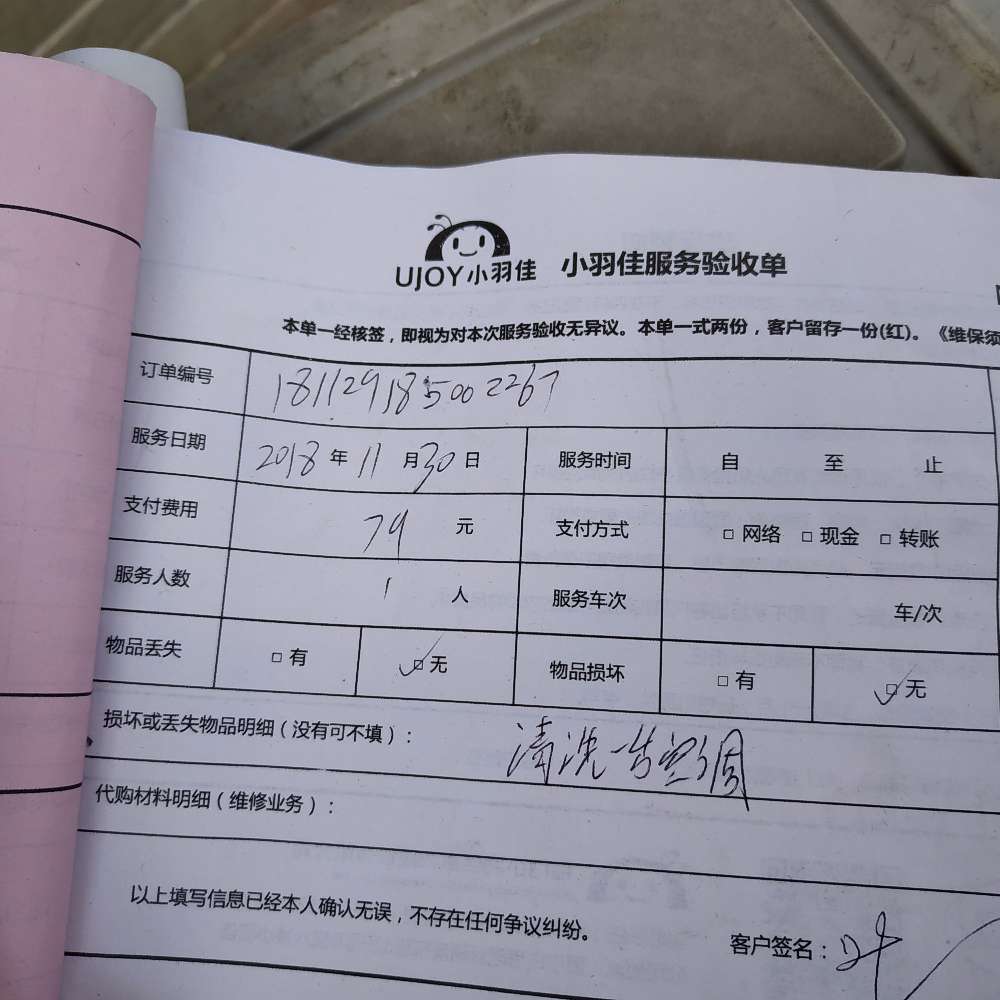 UJOY小羽佳 小羽佳服务验收单
本单一经核签，即视为对本次服务验收无异议。本单一式两份，客户留存一份(红)。《维保须
订单编号 181129185002267
服务日期 2018年11月30日 服务时间 自 至 止
支付费用 79元 支付方式 □网络 □现金 □转账
服务人数 1人 服务车次 车/次
物品丢失 □有 ☑无 物品损坏 □有 ☑无
损坏或丢失物品明细（没有可不填）： 清洗一台空调
代购材料明细（维修业务）：
以上填写信息已经本人确认无误，不存在任何争议纠纷。
客户签名：叶